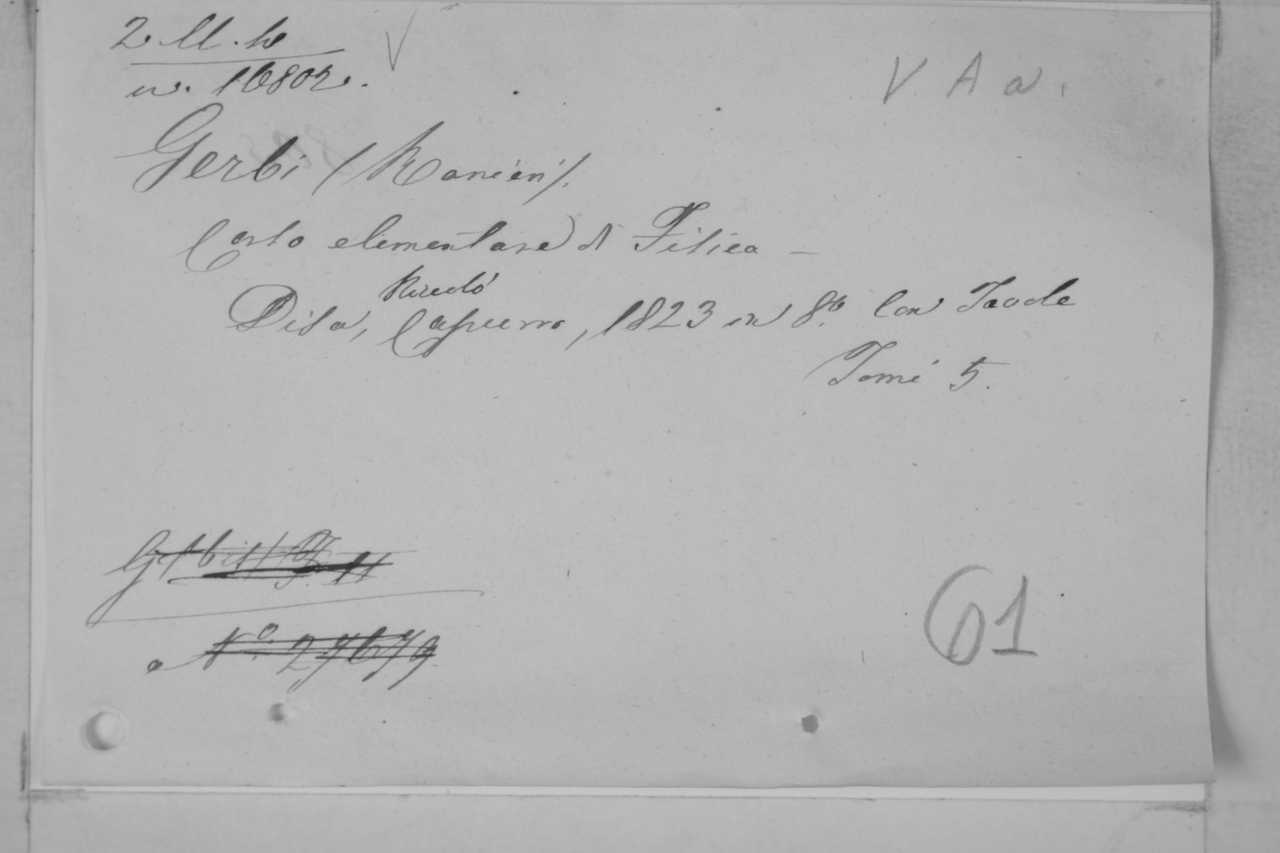 2. M. b
n. 16802.
V A a.
Gerbi (Ranieri).
Corso elementare di Fisica —
Pisa, Niccoló Capurro, 1823 in 8.o Con Tavole
Tomi 5.
No. 27679
61